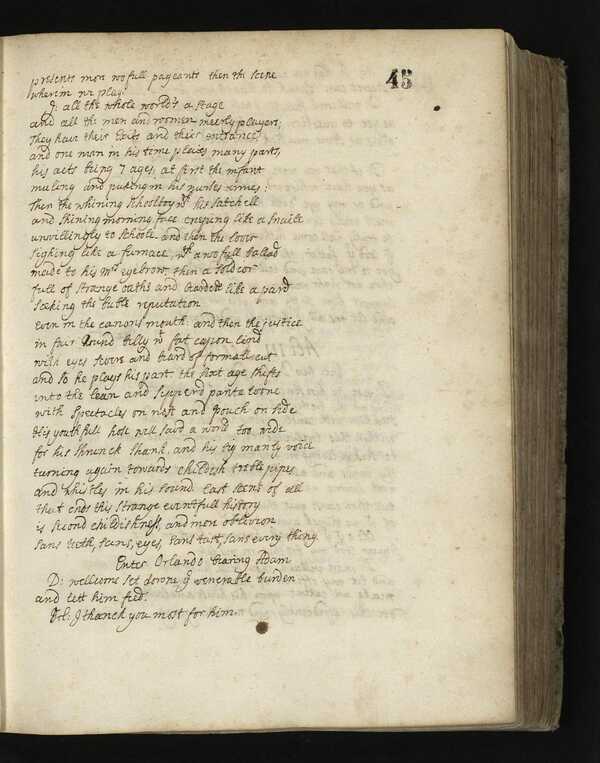 45
presents more wofull pageants then the scene
wherein we play.
J: all the whole world's a stage
and all the men and woemen meerly players;
They have their Exits and their entrances
and one man in his time plaies many parts,
his acts being 7 ages, at first the infant
muling and puking in his nurses armes:
Then the whining schoolboy wth his satchell
and shining morning face creeping like a snaile
unwillingly to schoole. and then the lover
sighing like a furnace, wth a wofull ballad
made to his Mrs eyebrow, then a soldior
full of strange oaths and bearded like a pard
seeking the buble reputation
even in the canons mouth: and then the justice
in fair round belly wth fat capon lined
with eyes severe and beard of formall cut
and so he plays his part the sixt age shifts
into the lean and slipperd pantaloone
with spectacles on nose and pouch on side
His youthfull hose well savd a world too wide
for his shrunck shank, and his big manly voice
turning again towards childish treble pipes
and whistles in his sound. Last scene of all
that ends this strange eventfull history
is second childishness, and meer oblivion
sans teeth, sans, eyes, sans tast, sans every thing.
Enter Orlando bearing Adam
D: wellcome set downe yr venerable burden
and lett him feed.
Orl: J thanck you most for him.